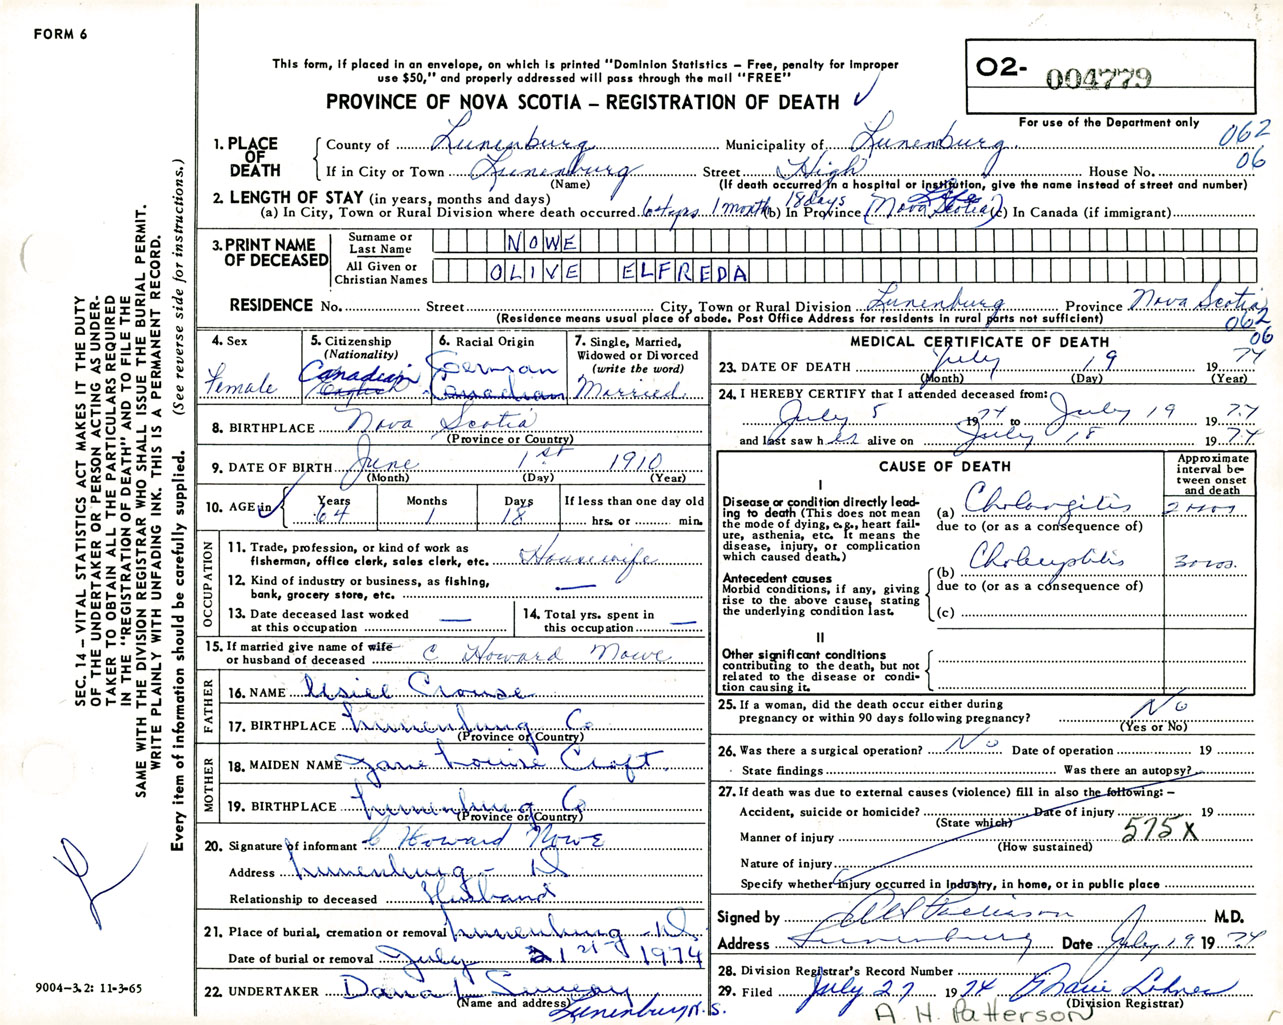 FORM 6
This form, if placed in an envelope, on which is printed "Dominion Statistics – Free, penalty for improper
use $50," and properly addressed will pass through the mail "FREE"
PROVINCE OF NOVA SCOTIA – REGISTRATION OF DEATH ✓
O2- 004779
For use of the Department only
062
06
1. PLACE OF DEATH
County of Lunenburg Municipality of Lunenburg
If in City or Town Lunenburg Street High House No.
(Name) (If death occurred in a hospital or institution, give the name instead of street and number)
2. LENGTH OF STAY (in years, months and days)
(a) In City, Town or Rural Division where death occurred 64 yrs 1 month 18 days (b) In Province Life (Nova Scotia) (c) In Canada (if immigrant)
3. PRINT NAME OF DECEASED
Surname or Last Name NOWE
All Given or Christian Names OLIVE ELFREDA
RESIDENCE No. Street City, Town or Rural Division Lunenburg Province Nova Scotia
(Residence means usual place of abode. Post Office Address for residents in rural parts not sufficient)
062
06
4. Sex
Female
5. Citizenship
(Nationality)
Canadian
English
6. Racial Origin
German
Canadian
7. Single, Married, Widowed or Divorced
(write the word)
Married
8. BIRTHPLACE Nova Scotia
(Province or Country)
9. DATE OF BIRTH June 1st 1910
(Month) (Day) (Year)
10. AGE in ✓ Years Months Days If less than one day old
64 1 18 hrs. or min.
OCCUPATION
11. Trade, profession, or kind of work as
fisherman, office clerk, sales clerk, etc. Housewife
12. Kind of industry or business, as fishing,
bank, grocery store, etc. —
13. Date deceased last worked
at this occupation —
14. Total yrs. spent in
this occupation —
15. If married give name of wife
or husband of deceased C Howard Nowe
FATHER
16. NAME Usiel Crouse
17. BIRTHPLACE Lunenburg Co
(Province or Country)
MOTHER
18. MAIDEN NAME Jane Louise Croft.
19. BIRTHPLACE Lunenburg Co
(Province or Country)
20. Signature of informant C Howard Nowe
Address Lunenburg - NS
Relationship to deceased Husband
21. Place of burial, cremation or removal Lunenburg - NS
Date of burial or removal July 21 21st 1974
22. UNDERTAKER Dana L Sweeny
(Name and address) Lunenburg N.S.
MEDICAL CERTIFICATE OF DEATH
23. DATE OF DEATH July 19 1974
(Month) (Day) (Year)
24. I HEREBY CERTIFY that I attended deceased from:
July 5 1974 to July 19 1974
and last saw her alive on July 18 1974
CAUSE OF DEATH
Approximate interval between onset and death
I
Disease or condition directly leading to death (This does not mean
the mode of dying, e.g., heart failure, asthenia, etc. It means the
disease, injury, or complication
which caused death.)
(a) Cholangitis
due to (or as a consequence of)
Antecedent causes
Morbid conditions, if any, giving
rise to the above cause, stating
the underlying condition last.
(b)
due to (or as a consequence of)
(c)
II
Other significant conditions
contributing to the death, but not
related to the disease or condition causing it.
25. If a woman, did the death occur either during
pregnancy or within 90 days following pregnancy? No
(Yes or No)
26. Was there a surgical operation? No Date of operation 19
State findings Was there an autopsy?
27. If death was due to external causes (violence) fill in also the following: –
Accident, suicide or homicide? Date of injury 19
(State which)
Manner of injury 575X
(How sustained)
Nature of injury
Specify whether injury occurred in Industry, in home, or in public place
Signed by M.D.
Address Lunenburg Date July 19 1974
28. Division Registrar's Record Number
29. Filed July 27 1974 Marie Lohnes
(Division Registrar)
A. H. Patterson
SEC. 14 – VITAL STATISTICS ACT MAKES IT THE DUTY
OF THE UNDERTAKER OR PERSON ACTING AS UNDERTAKER TO OBTAIN ALL THE PARTICULARS REQUIRED
IN THE "REGISTRATION OF DEATH" AND TO FILE THE
SAME WITH THE DIVISION REGISTRAR WHO SHALL ISSUE THE BURIAL PERMIT.
WRITE PLAINLY WITH UNFADING INK. THIS IS A PERMANENT RECORD.
Every item of information should be carefully supplied. (See reverse side for instructions.)
9004-3.2: 11-3-65